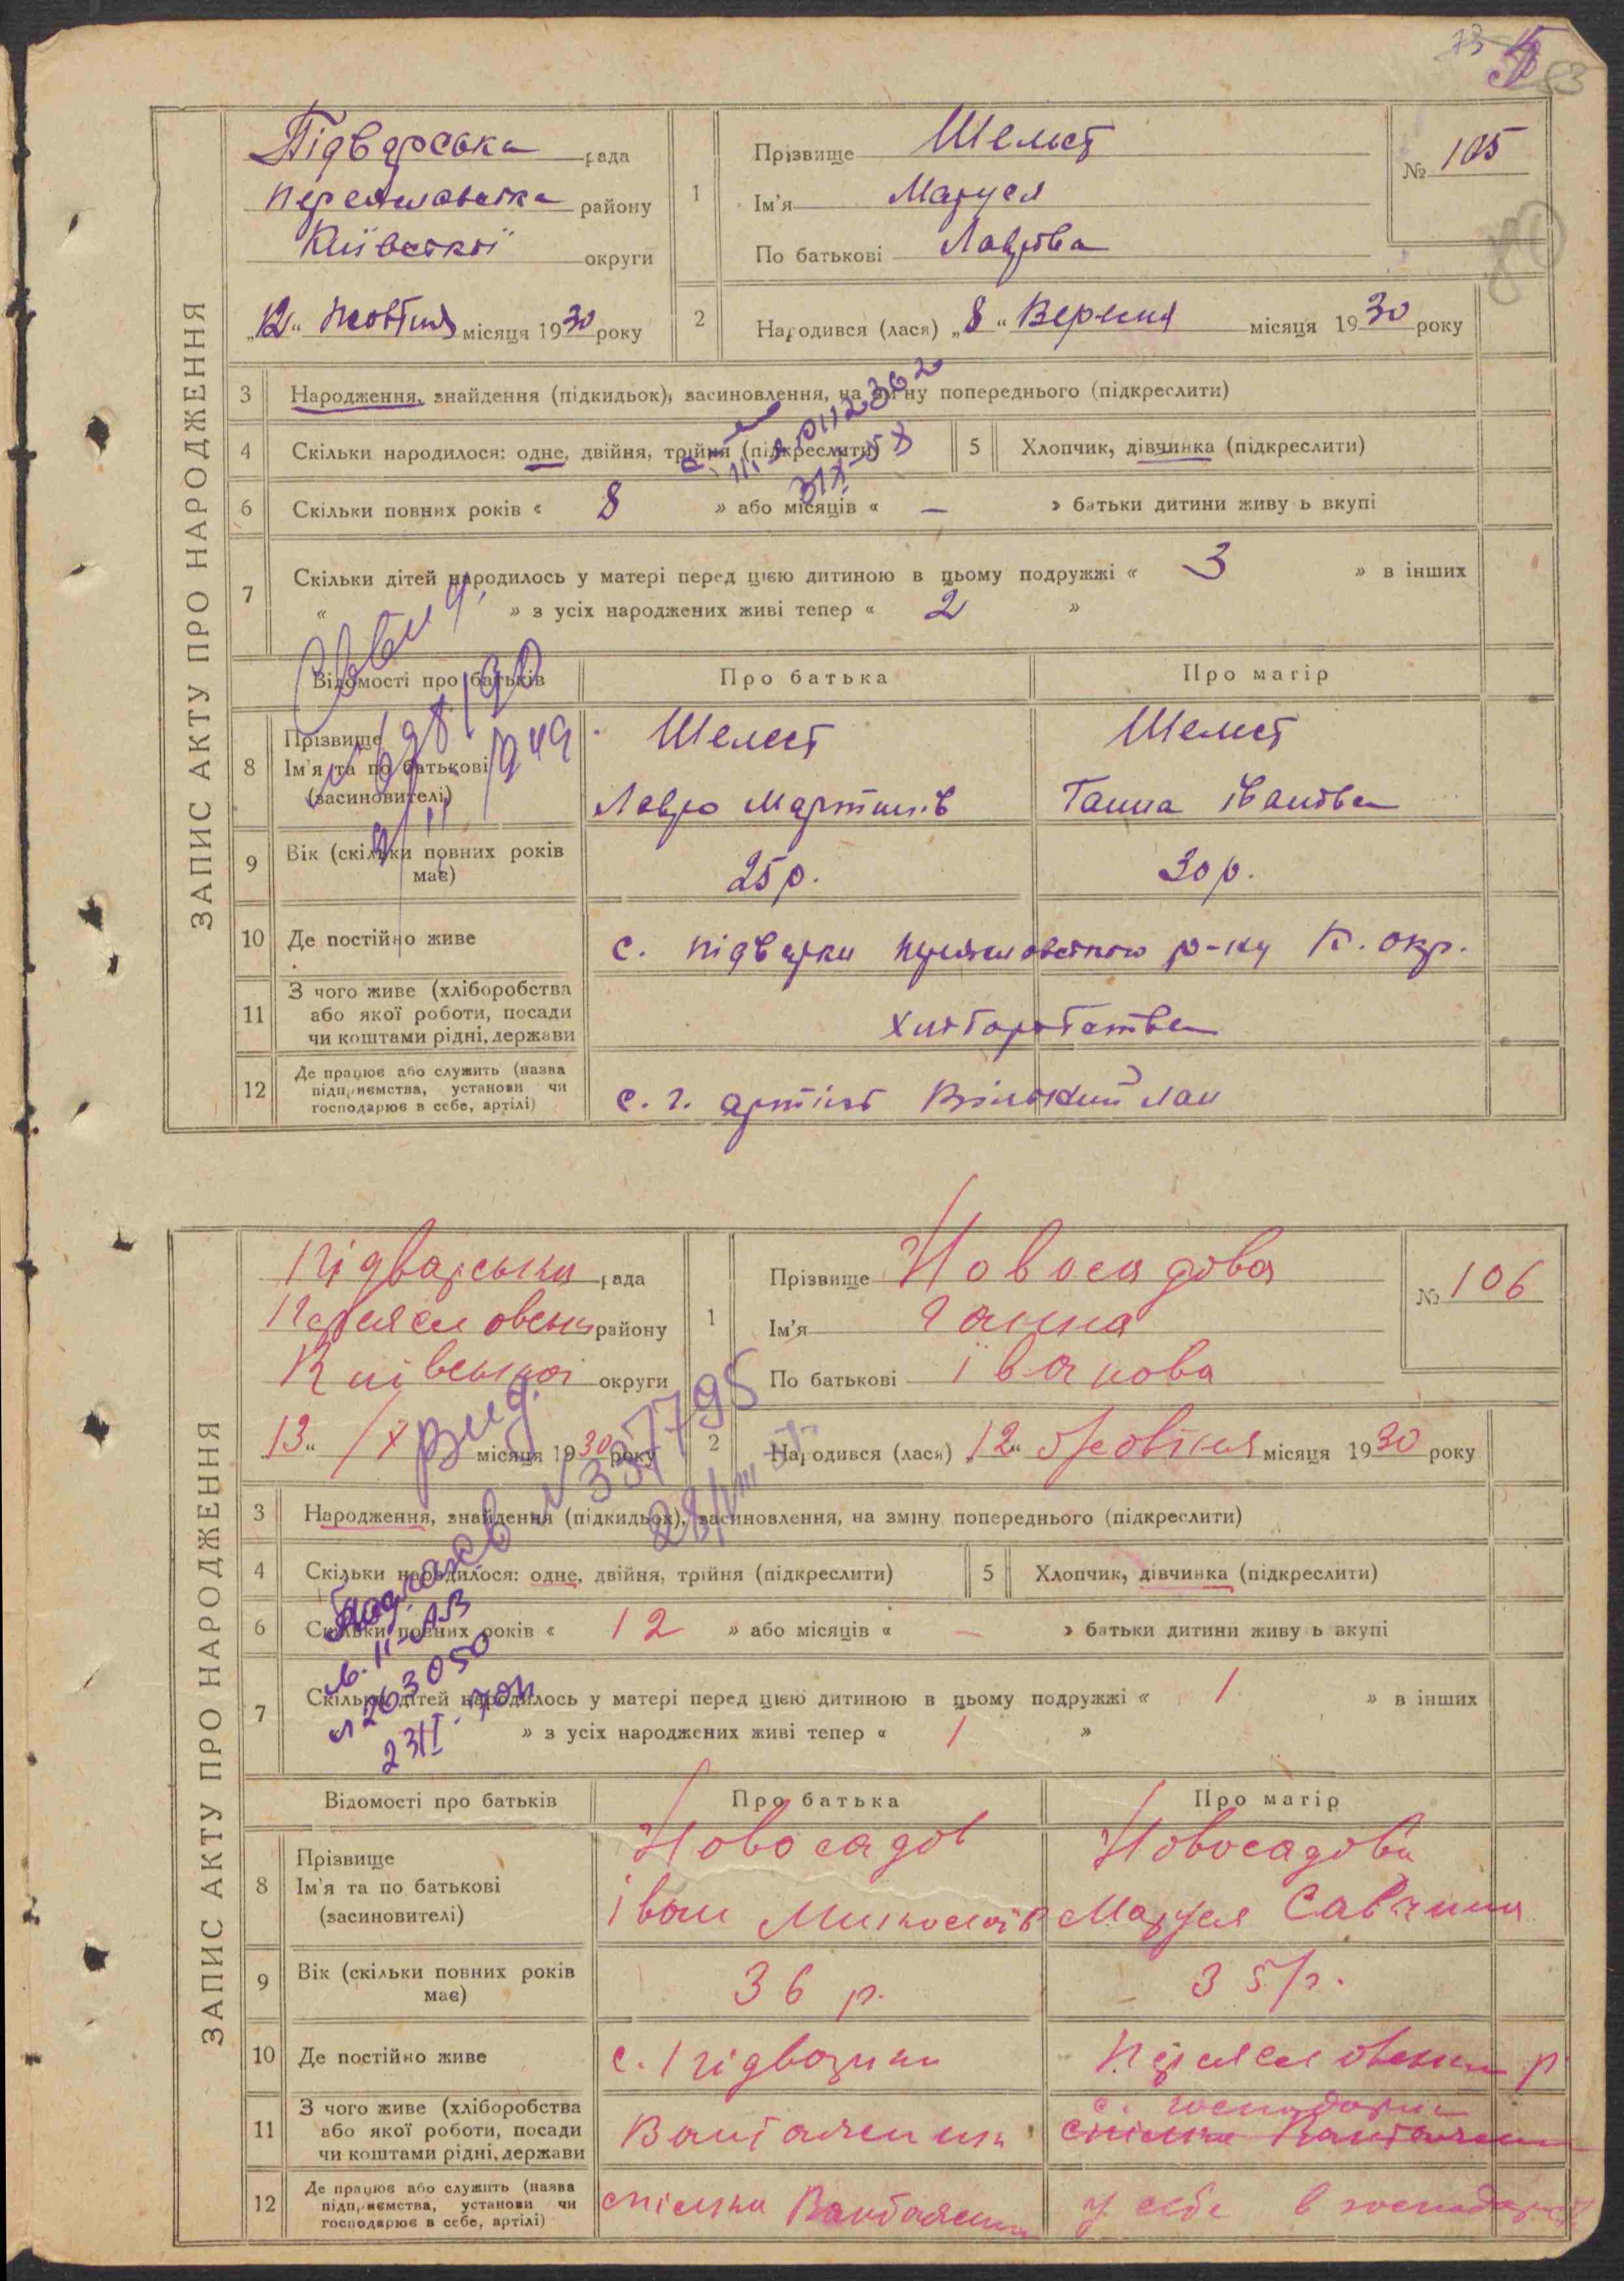 73
53
ЗАПИС АКТУ ПРО НАРОДЖЕННЯ
Підварська рада
Переяславська району
Київської округи
„12“ Жовтня місяця 1930 року
1
Прізвище Шелест
Ім'я Маруся
По батькові Лаврова
№ 105
2
Народився (лася) „8“ Вересня місяця 1930 року
3 Народження, знайдення (підкидьок), засиновлення, на зміну попереднього (підкреслити)
4 Скільки народилося: одне, двійня, трійня (підкреслити)
5 Хлопчик, дівчинка (підкреслити)
6 Скільки повних років « 8 » або місяців « — » батьки дитини живуть вкупі
7 Скільки дітей народилось у матері перед цією дитиною в цьому подружжі « 3 » в інших
« » з усіх народжених живі тепер « 2 »
Відомості про батьків
Про батька
Про матір
8 Прізвище
Ім'я та по батькові
(засиновителі)
Шелест
Лавро Мартинів
Шелест
Ганна Іванова
1949
9 Вік (скільки повних років має)
25 р.
30 р.
10 Де постійно живе
с. Підварки Переяславського р-ну К. окр.
11 З чого живе (хліборобства
або якої роботи, посади
чи коштами рідні, держави
Хліборобства
12 Де працює або служить (назва
підприємства, установи чи
господарює в себе, артілі)
с. г. артіль Вільний лан
ЗАПИС АКТУ ПРО НАРОДЖЕННЯ
Підварська рада
Переяславськ району
Київської округи
13 “ /X місяця 1930 року
1
Прізвище Новосадова
Ім'я Ганна
По батькові Іванова
№ 106
2
Народився (лася) „12“ Жовтня місяця 1930 року
вид.
№ 337795
28/VIII
3 Народження, знайдення (підкидьох), засиновлення, на зміну попереднього (підкреслити)
4 Скільки народилося: одне, двійня, трійня (підкреслити)
5 Хлопчик, дівчинка (підкреслити)
6 Скільки повних років « 12 » або місяців « — » батьки дитини живуть вкупі
II-АВ
263050
7 Скільки дітей народилось у матері перед цією дитиною в цьому подружжі « 1 » в інших
» з усіх народжених живі тепер « 1 »
Відомості про батьків
Про батька
Про матір
8 Прізвище
Ім'я та по батькові
(засиновителі)
Новосадов
Іван Миколаїв
Новосадова
Маруся Савична
9 Вік (скільки повних років має)
36 р.
35 р.
10 Де постійно живе
с. Підварки
Переяславськ р
11 З чого живе (хліборобства
або якої роботи, посади
чи коштами рідні, держави
Вантажник
с. господарка
спілка Вантажни
12 Де працює або служить (назва
підприємства, установи чи
господарює в себе, артілі)
спілка Вантажник
у себе в господарстві